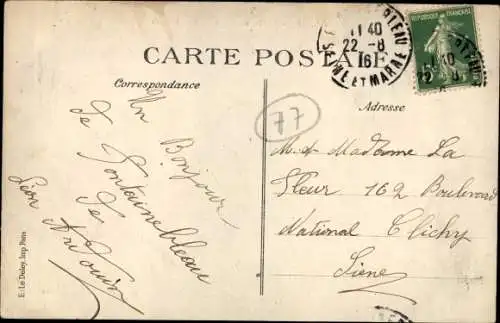 CARTE POSTALE
Correspondance
Adresse
RÉPUBLIQUE FRANÇAISE
11 40
22 - 8
16
SEINE ET MARNE
77
Un Bonjour
de Fontainebleau
de
Léon Antonin
M. et Madame La
Fleur 162 Boulevard
National Clichy
Seine
E. Le Deley, Imp. Paris